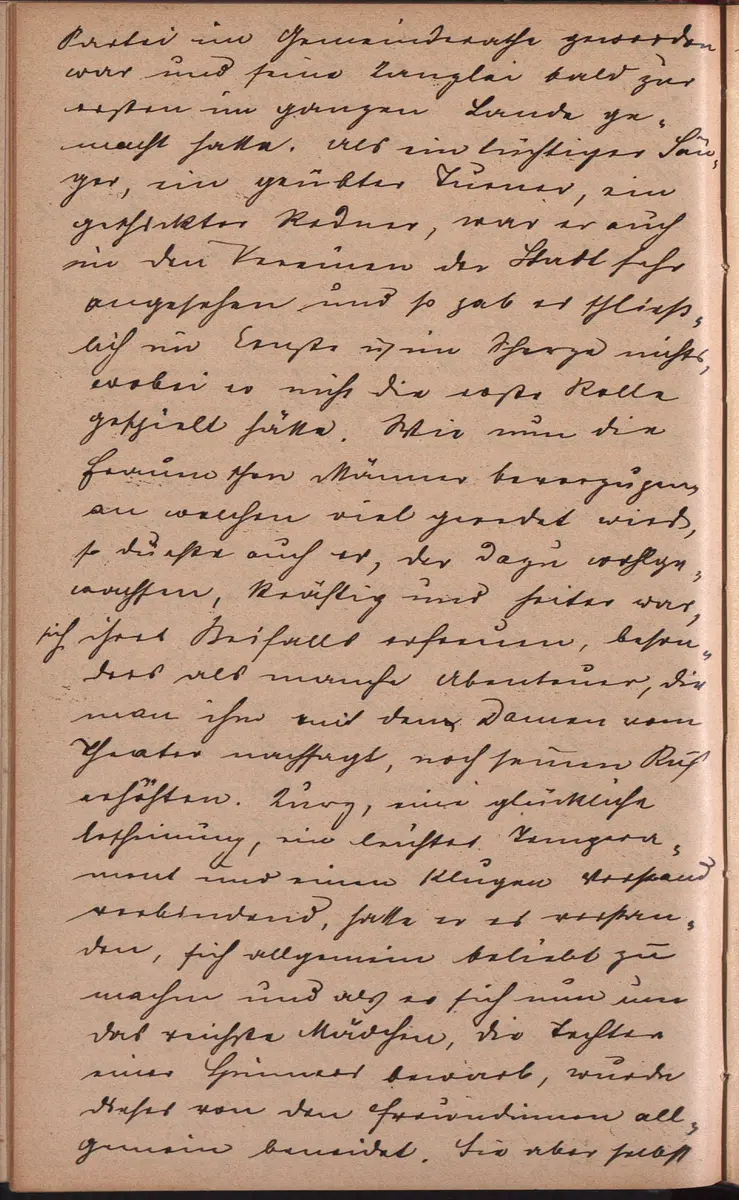 Partei im Gemeinderathe geworden
war und seine Kanzlei bald zur
ersten im ganzen Lande ge-
macht hatte. Als ein tüchtiger Sän-
ger, ein geübter Turner, ein
geschickter Redner, war er auch
in den Vereinen der Stadt sehr
angesehen und so gab es schließ-
lich im Ernste u im Scherze nichts,
wobei er nicht die erste Rolle
gespielt hätte. Wie nun die
Frauen schon Männer bevorzugen,
an welchen viel geredet wird,
so durfte auch er, der dazu wohlge-
wachsen, kräftig und heiter war,
sich ihres Beifalls erfreuen, beson-
ders als manche Abenteuer, die
man ihm mit den Damen vom
Theater nachsagt, noch seinen Ruf
erhöhten. Kurz, eine glückliche
Erscheinung, ein leichtes Tempera-
ment und einen klugen Verstand
verbindend, hatte er es verstan-
den, sich allgemein beliebt zu
machen und als er sich nun um
das reichste Mädchen, die Tochter
eines bewarb, wurde
dieses von den Freundinnen all-
gemein beneidet. Sie aber selbst